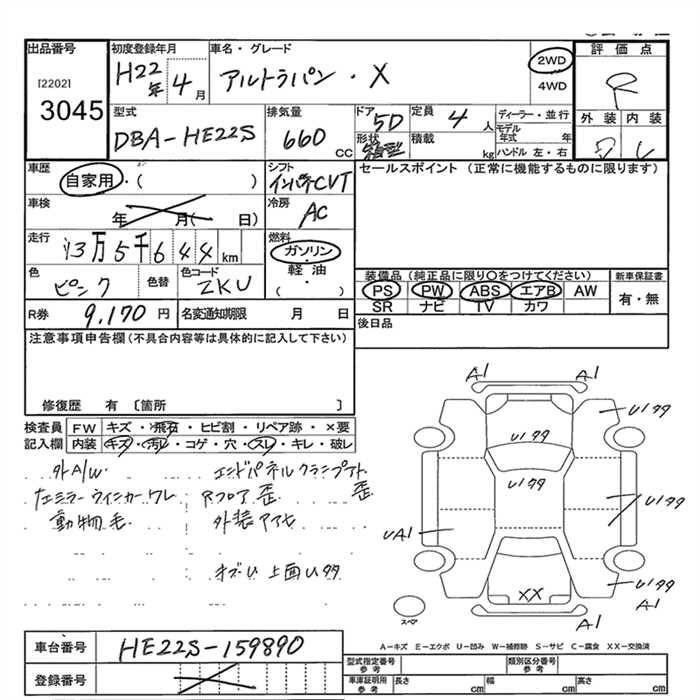 出品番号
[2202]
3045
初度登録年月
H22年 4月
車名・グレード
アルトラパン・X
2WD
4WD
評価点
R
外装 内装
型式
DBA-HE22S
排気量
660 CC
ドア
5D
形状
定員
4人
積載
kg
ディーラー・並行
モデル年式 年
ハンドル 左・右
車歴
自家用・( )
車検
年 月( 日)
走行
13万5千644km
色
ピンク
色替
色コード
ZKU
シフト
インパネCVT
冷房
AC
燃料
ガソリン
軽油
( )
セールスポイント (正常に機能するものに限ります)
装備品(純正品に限り○をつけてください)
PS PW ABS エアB AW
SR ナビ TV カワ
新車保証書
有・無
R券 9,170円
名変通知期限 月 日
後日品
注意事項申告欄(不具合内容等は具体的に記入して下さい)
修復歴 有 〔箇所 〕
検査員記入欄
FW キズ・飛石・ヒビ割・リペア跡・×要
内装 キズ・汚れ・コゲ・穴・スレ・キレ・破レ
外A/W
左ミラーウインカーワレ
動物毛
エンドパネルクランプ歪
Rフロア歪
外装
上面Uタタ
A1 A1
Uタタ
Uタタ
Uタタ
Uタタ
UA1
Uタタ
A1
XX
A1
スペア
A-キズ E-エクボ U-凹み W-補修跡 S-サビ C-腐食 XX-交換済
車台番号
HE22S-159890
登録番号
型式指定番号 参考
類別区分番号 参考
車庫証明用 参考
長さ cm
幅 cm
高さ cm